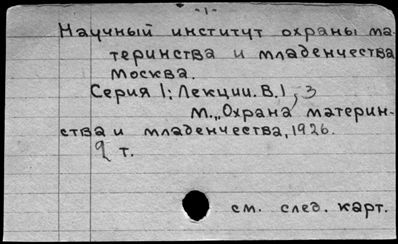 -1-
Научный институт охраны ма-
теринства и младенчества
Москва.
Серия 1: Лекции. В.1,-3
М. „Охрана материн-
ства и младенчества, 1926.
2 т.
см. след. карт.